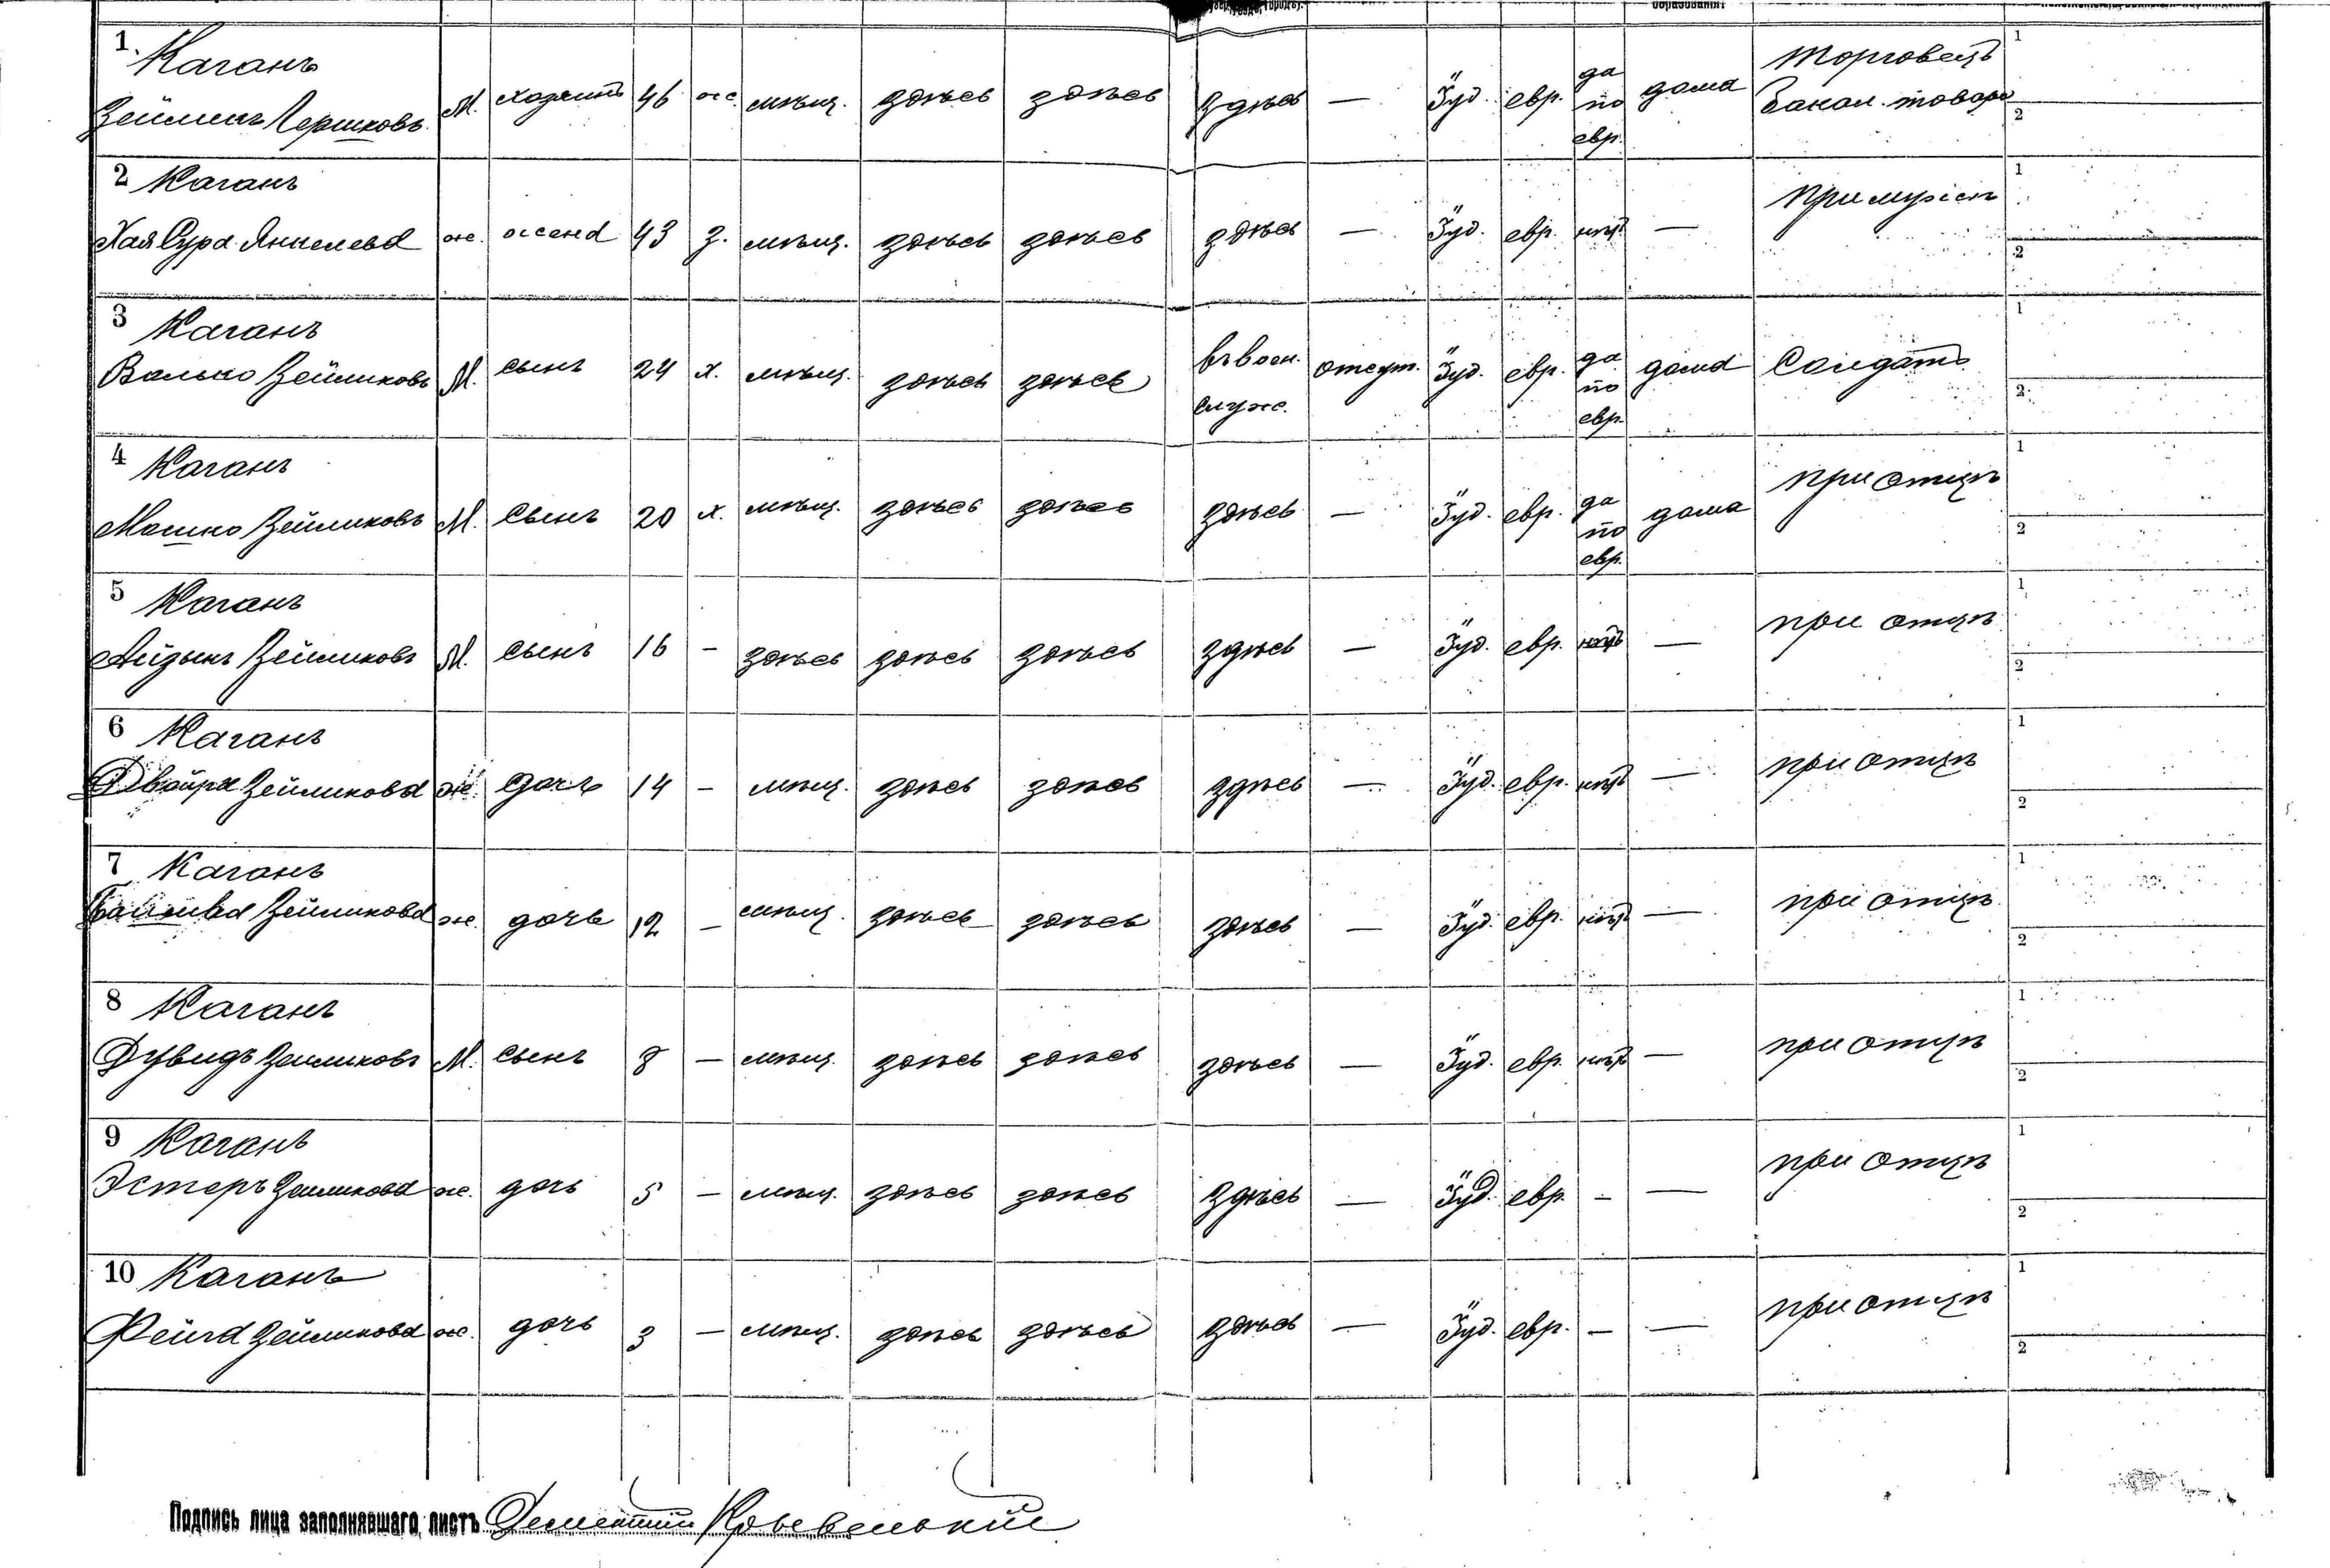 образованiя?
1. Каганъ
Зейликъ Гершковъ М. хозяинъ 46 ж. мѣщ. здѣсь здѣсь здѣсь — Iуд. евр. да по евр. дома Торговецъ Бакал. товаро
1
2
2 Каганъ
Хая Сура Янкелева ж. жена 43 з. мѣщ. здѣсь здѣсь здѣсь — Iуд. евр. нѣтъ — при мужѣ
1
2
3 Каганъ
Валько Зейликовъ М. сынъ 24 х. мѣщ. здѣсь здѣсь въ воен. служ. отсут. Iуд. евр. да по евр. дома Солдатъ
1
2
4 Каганъ
Мошко Зейликовъ М. сынъ 20 х. мѣщ. здѣсь здѣсь здѣсь — Iуд. евр. да по евр. дома при отцѣ
1
2
5 Каганъ
Айзыкъ Зейликовъ М. сынъ 16 — здѣсь здѣсь здѣсь здѣсь — Iуд. евр. нѣтъ — при отцѣ
1
2
6 Каганъ
Двойра Зейликова ж. дочь 14 — мѣщ. здѣсь здѣсь здѣсь — Iуд. евр. нѣтъ — при отцѣ
1
2
7 Каганъ
Зейликова ж. дочь 12 — мѣщ. здѣсь здѣсь здѣсь — Iуд. евр. нѣтъ — при отцѣ
1
2
8 Каганъ
Дувидъ Зейликовъ М. сынъ 8 — мѣщ. здѣсь здѣсь здѣсь — Iуд. евр. нѣтъ — при отцѣ
1
2
9 Каганъ
Эстеръ Зейликова ж. дочь 5 — мѣщ. здѣсь здѣсь здѣсь — Iуд. евр. — — при отцѣ
1
2
10 Каганъ
Фейга Зейликова ж. дочь 3 — мѣщ. здѣсь здѣсь здѣсь — Iуд. евр. — — при отцѣ
1
2
Подпись лица заполнявшаго листъ Дементiй